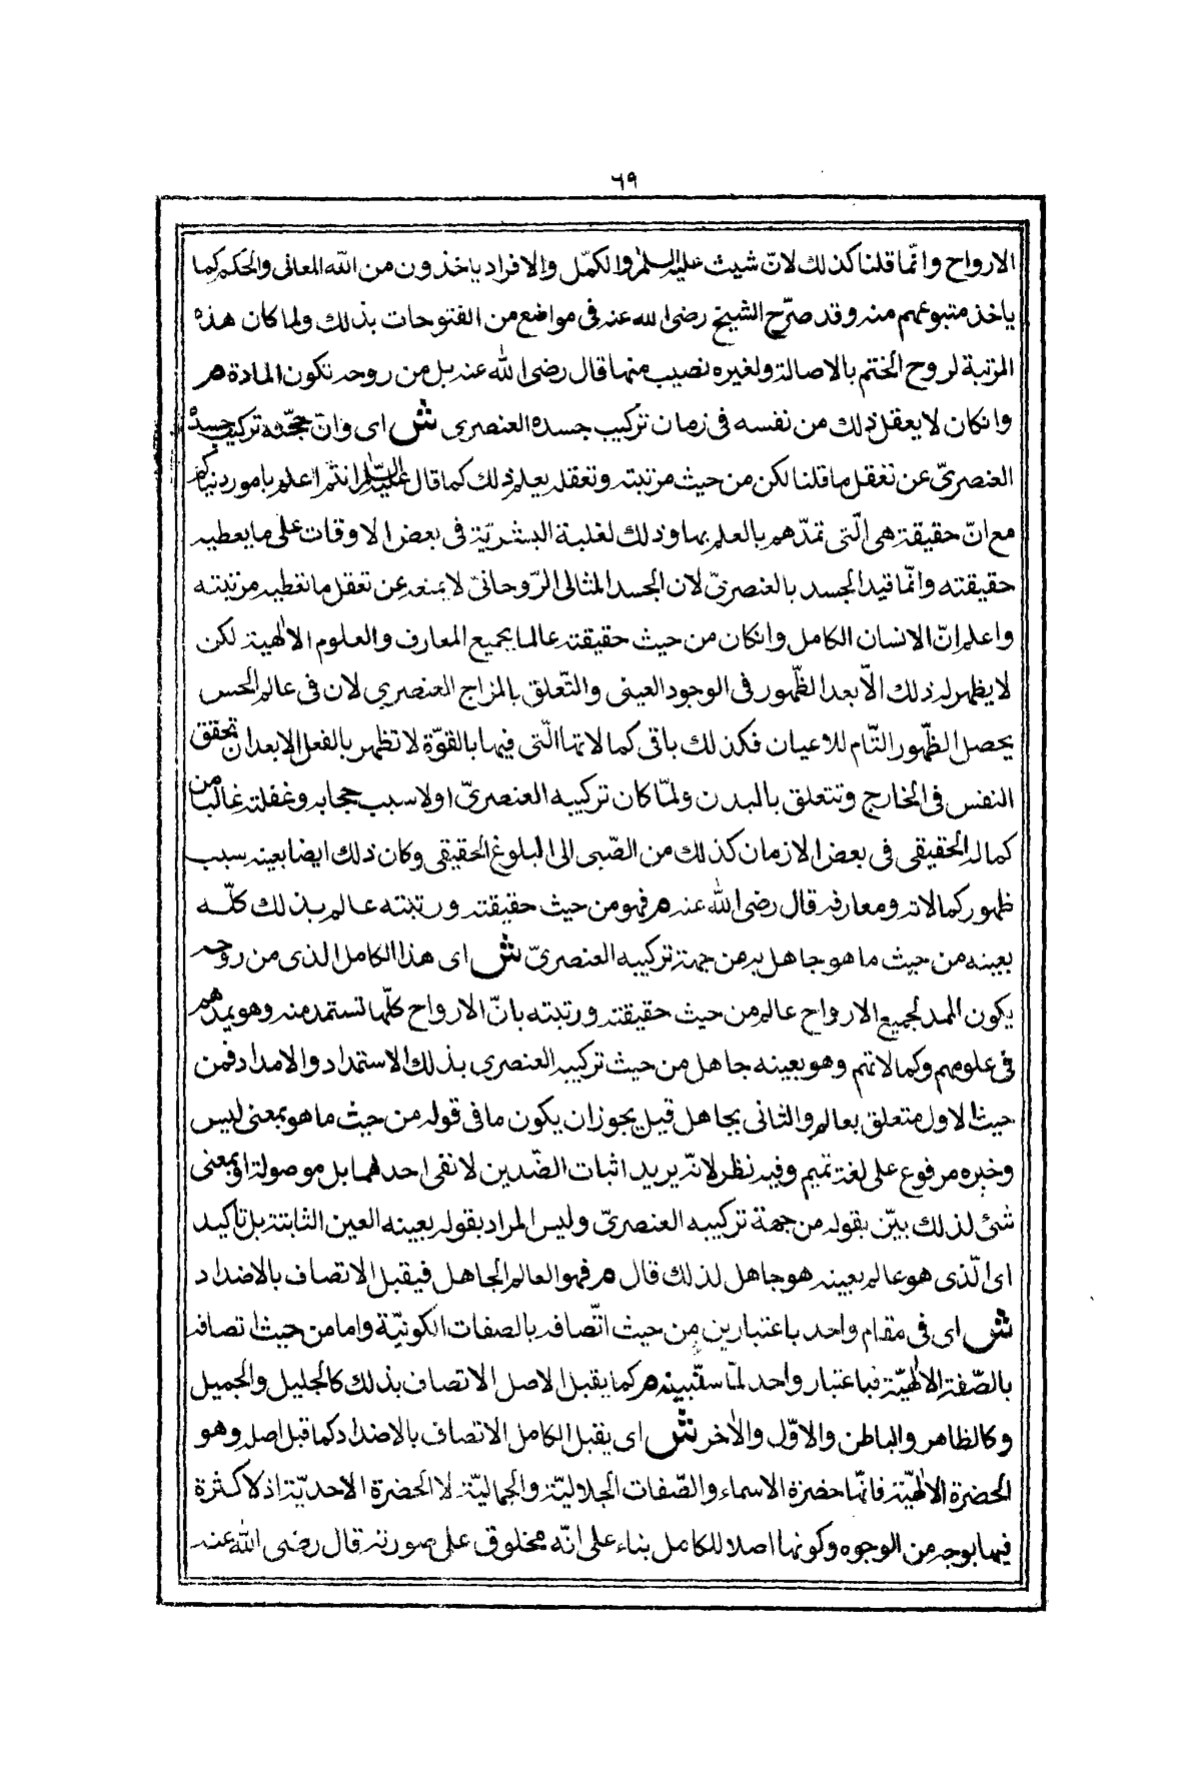 ٦٩
الارواح وانّما قلنا كذلك لانّ شيث عليه السلم والكمّل والافراد ياخذون من الله المعانى والحكم كما
ياخذ متبوعهم منه وقد صرّح الشيخ رضى الله عنه فى مواضع من الفتوحات بذلك ولما كان هذه
المرتبة لروح الختم بالاصالة ولغيره نصيب منها قال رضى الله عنه بل من روحه تكون المادة م
وانكان لا يعقل ذلك من نفسه فى زمان تركيب جسده العنصرى ش اى وانّ حجّه تركيب جسده
العنصرىّ عن تعقل ما قلنا لكن من حيث مرتبته وتعقله يعلم ذلك كما قال عليه السّلم انتم اعلم بامور دنياكم
مع انّ حقيقته هى الّتى تمدّهم بالعلم بها وذلك لغلبة البشريّة فى بعض الاوقات على ما يعطيه
حقيقته وانّما قيد الجسد بالعنصرىّ لان الجسد المثالى الرّوحانىّ لا يمنعه عن تعقل ما تعطيه مرتبته
واعلم انّ الانسان الكامل وانكان من حيث حقيقته عالما بجميع المعارف والعلوم الالٰهية لكن
لا يظهر له ذلك الّا بعد الظّهور فى الوجود العينى والتّعلق بالمزاج العنصرى لان فى عالم الحس
يحصل الظّهور التّام للاعيان فكذلك باقى كمالاتها الّتى فيها بالقوّة لا تظهر بالفعل الا بعد ان تحقق
النفس فى الخارج وتتعلق بالبدن ولمّا كان تركيبه العنصرىّ اولا سبب حجابه وغفلته غالبا من
كماله الحقيقى فى بعض الازمان كذلك من الصّبى الى البلوغ الحقيقى وكان ذلك ايضا بعينه سبب
ظهور كمالاته ومعارفه قال رضى الله عنه م فهو من حيث حقيقته ورتبته عالم بذلك كلّه
بعينه من حيث ما هو جاهل به من جهة تركيبه العنصرىّ ش اى هذا الكامل الذى من روحه
يكون المدد لجميع الارواح عالم من حيث حقيقته ورتبته بانّ الارواح كلّها تستمد منه وهو يمدهم
فى علومهم وكمالاتهم وهو بعينه جاهل من حيث تركيبه العنصرى بذلك الاستمداد والامداد فمن
حيث الاول متعلق بعالم والثانى بجاهل قيل يجوز ان يكون ما فى قوله من حيث ما هو بمعنى ليس
وخبره مرفوع على لغة تميم وفيه نظر لانّه يريد اثبات الضّدين لا نفى احدهما بل موصولة او بمعنى
شئ لذلك بيّن بقوله من جهة تركيبه العنصرىّ وليس المراد بقوله بعينه العين الثابتة بل تاكيد
اى الّذى هو عالم بعينه هو جاهل لذلك قال م فهو العالم الجاهل فيقبل الاتصاف بالاضداد
ش اى فى مقام واحد باعتبارين من حيث اتّصافه بالصفات الكونيّة واما من حيث اتصافه
بالصّفة الالٰهيّة فباعتبار واحد لمّا سنبينه م كما يقبل الاصل الاتصاف بذلك كالجليل والجميل
وكالظاهر والباطن والاوّل والاٰخر ش اى يقبل الكامل الاتصاف بالاضداد كما قبل اصله وهو
الحضرة الالٰهيّة فانّها حضرة الاسماء والصّفات الجلاليّة والجماليّة لا الحضرة الاحديّة اذ لا كثرة
فيها بوجه من الوجوه وكونها اصلا للكامل بناء على انّه مخلوق على صورته قال رضى الله عنه